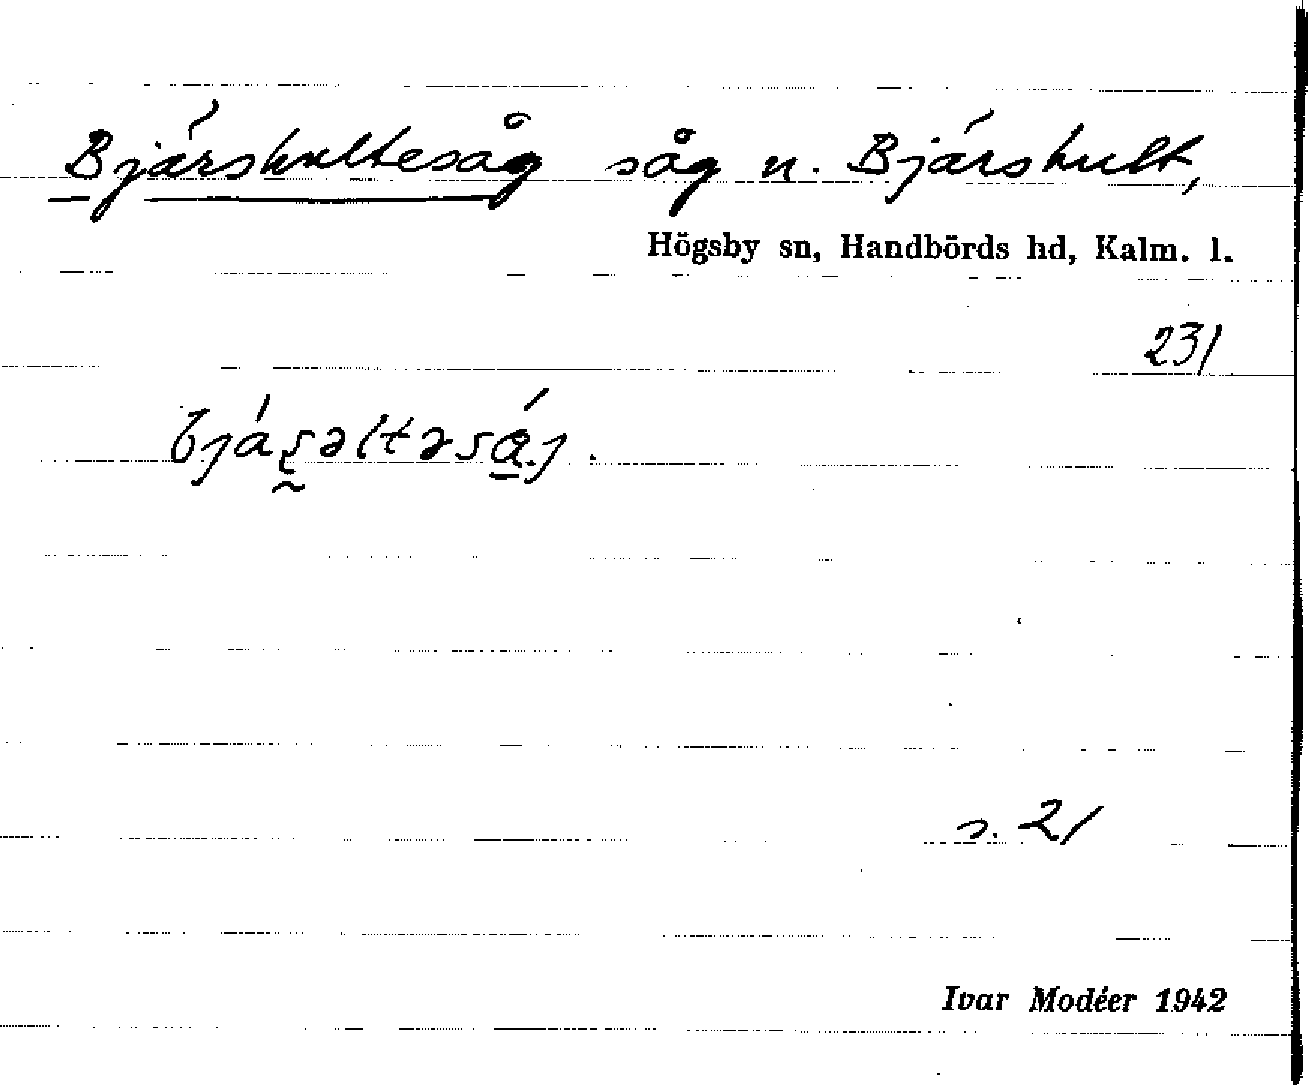 Bjárshultesåg såg n. Bjárshult,
Högsby sn, Handbörds hd, Kalm. l.
231
s. 21
Ivar Modéer 1942